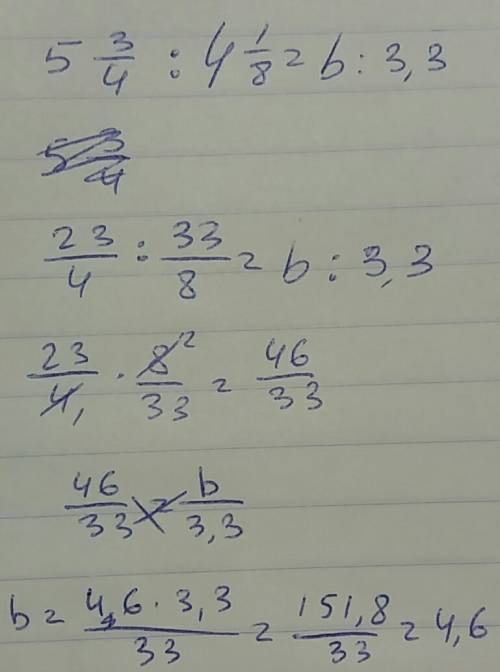 5 3/4 : 4 1/8 = b : 3,3
5 3/4
23/4 : 33/8 = b : 3,3
23/4, · 8²/33 = 46/33
46/33 = b/3,3
b = 4,6 · 3,3/33 = 151,8/33 = 4,6